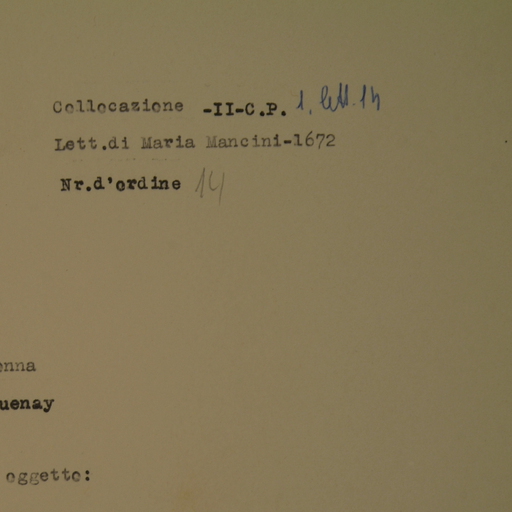 Collocazione -II-C.P. 1. lett. 14
Lett.di Maria Mancini-1672
Nr.d'ordine 14
enna
uenay
oggetto: